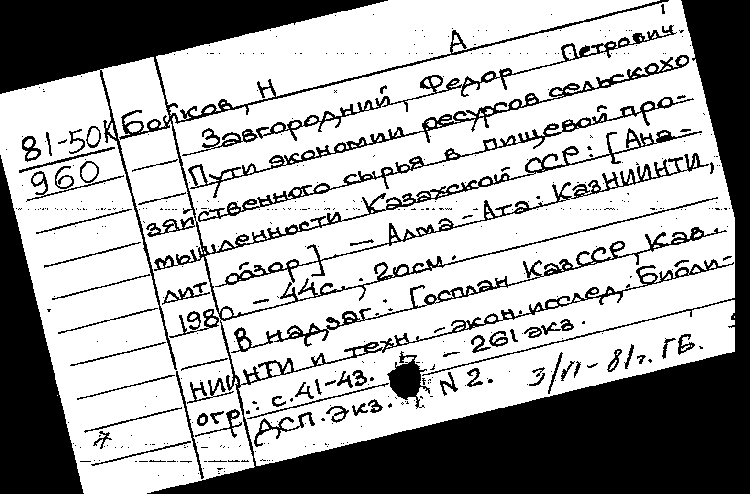 81-50К
960
Бойков, Н А
Завгородний, Федор Петрович.
Пути экономии ресурсов сельскохо
зяйственного сырья в пищевой про-
мышленности Казахской ССР: [Ана-
лит обзор]. — Алма-Ата: КазНИИНТИ,
1980. - 44с.; 20см.
В надзаг.: Госплан КазССР, Каз.
НИИНТИ и техн.-экон.исслед. Библи-
огр.: с.41-43. — 261 экз.
ДСП. Экз. N 2. 3/VI-81г. ГБ.